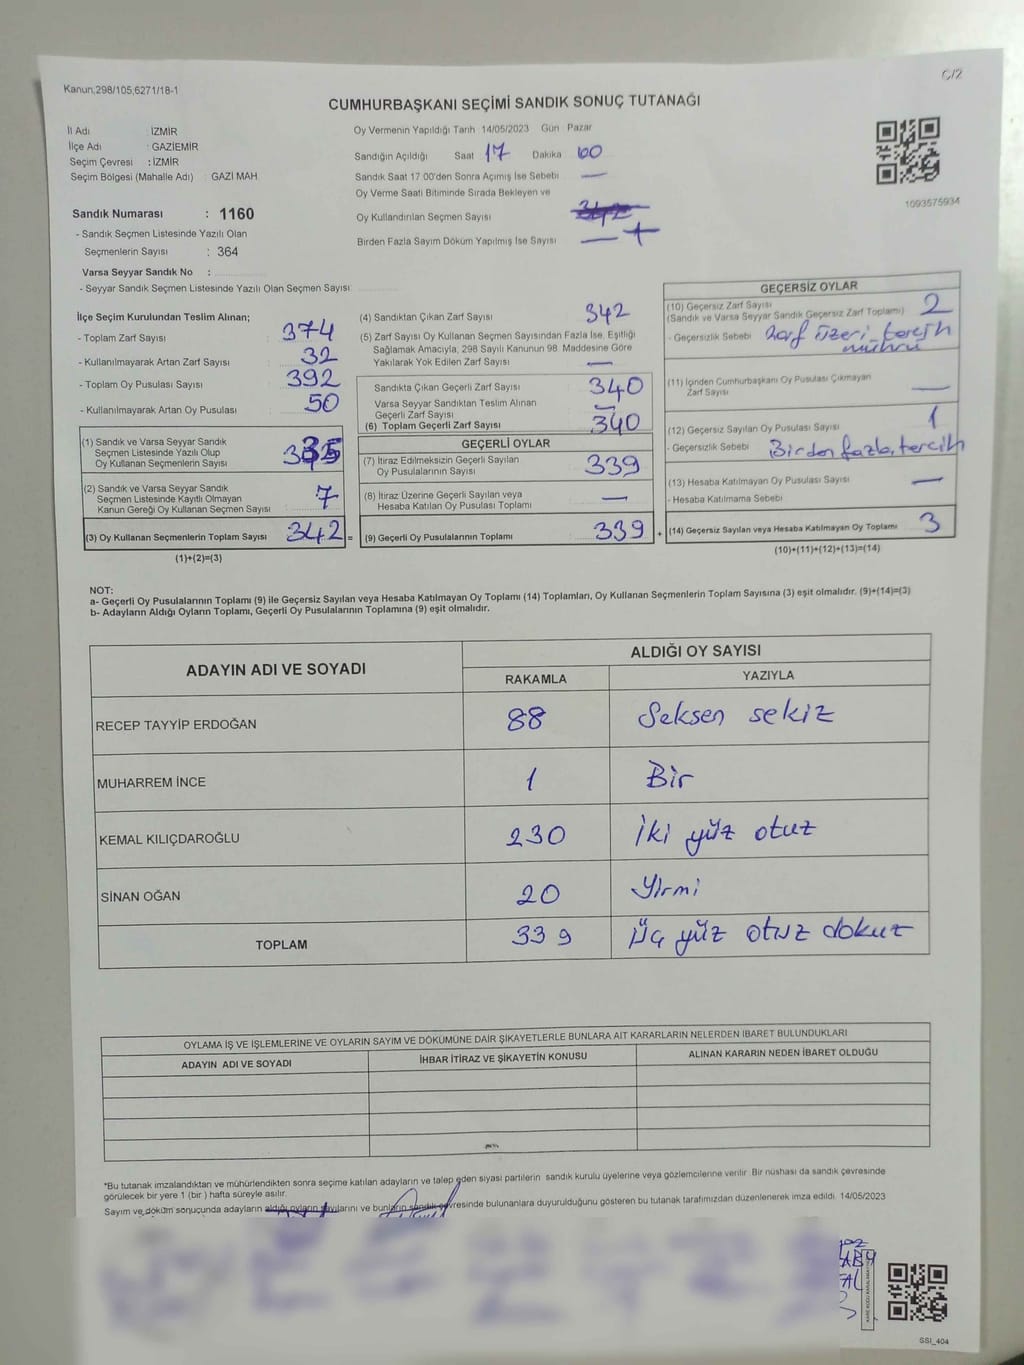 C/2
Kanun,298/105,6271/18-1
CUMHURBAŞKANI SEÇİMİ SANDIK SONUÇ TUTANAĞI
İl Adı : İZMİR
İlçe Adı : GAZİEMİR
Seçim Çevresi : İZMİR
Seçim Bölgesi (Mahalle Adı) : GAZİ MAH.
Sandık Numarası : 1160
- Sandık Seçmen Listesinde Yazılı Olan
Seçmenlerin Sayısı : 364
Varsa Seyyar Sandık No :
- Seyyar Sandık Seçmen Listesinde Yazılı Olan Seçmen Sayısı
Oy Vermenin Yapıldığı Tarih 14/05/2023 Gün Pazar
Sandığın Açıldığı Saat 17 Dakika 00
Sandık Saat 17 00'den Sonra Açımış İse Sebebi —
Oy Verme Saati Bitiminde Sırada Bekleyen ve
Oy Kullandırılan Seçmen Sayısı 342
Birden Fazla Sayım Döküm Yapılmış İse Sayısı —
1093575934
İlçe Seçim Kurulundan Teslim Alınan;
- Toplam Zarf Sayısı : 374
- Kullanılmayarak Artan Zarf Sayısı : 32
- Toplam Oy Pusulası Sayısı : 392
- Kullanılmayarak Artan Oy Pusulası : 50
(1) Sandık ve Varsa Seyyar Sandık
Seçmen Listesinde Yazılı Olup
Oy Kullanan Seçmenlerin Sayısı 335
(2) Sandık ve Varsa Seyyar Sandık
Seçmen Listesinde Kayıtlı Olmayan
Kanun Gereği Oy Kullanan Seçmen Sayısı 7
(3) Oy Kullanan Seçmenlerin Toplam Sayısı 342 =
(1)+(2)=(3)
(4) Sandıktan Çıkan Zarf Sayısı 342
(5) Zarf Sayısı Oy Kullanan Seçmen Sayısından Fazla İse, Eşitliği
Sağlamak Amacıyla, 298 Sayılı Kanunun 98. Maddesine Göre
Yakılarak Yok Edilen Zarf Sayısı —
Sandıkta Çıkan Geçerli Zarf Sayısı 340
Varsa Seyyar Sandıktan Teslim Alınan
Geçerli Zarf Sayısı —
(6) Toplam Geçerli Zarf Sayısı 340
GEÇERLİ OYLAR
(7) İtiraz Edilmeksizin Geçerli Sayılan
Oy Pusulalarının Sayısı 339
(8) İtiraz Üzerine Geçerli Sayılan veya
Hesaba Katılan Oy Pusulası Toplamı —
(9) Geçerli Oy Pusulalarının Toplamı 339 +
GEÇERSİZ OYLAR
(10) Geçersiz Zarf Sayısı
(Sandık ve Varsa Seyyar Sandık Geçersiz Zarf Toplamı) 2
- Geçersizlik Sebebi Zarf üzeri tercih
mührü
(11) İçinden Cumhurbaşkanı Oy Pusulası Çıkmayan
Zarf Sayısı —
(12) Geçersiz Sayılan Oy Pusulası Sayısı 1
- Geçersizlik Sebebi Birden fazla tercih
(13) Hesaba Katılmayan Oy Pusulası Sayısı —
- Hesaba Katılmama Sebebi
(14) Geçersiz Sayılan veya Hesaba Katılmayan Oy Toplamı 3
(10)+(11)+(12)+(13)=(14)
NOT:
a- Geçerli Oy Pusulalarının Toplamı (9) ile Geçersiz Sayılan veya Hesaba Katılmayan Oy Toplamı (14) Toplamları, Oy Kullanan Seçmenlerin Toplam Sayısına (3) eşit olmalıdır. (9)+(14)=(3)
b- Adayların Aldığı Oyların Toplamı, Geçerli Oy Pusulalarının Toplamına (9) eşit olmalıdır.
ADAYIN ADI VE SOYADI ALDIĞI OY SAYISI
RAKAMLA YAZIYLA
RECEP TAYYİP ERDOĞAN 88 Seksen sekiz
MUHARREM İNCE 1 Bir
KEMAL KILIÇDAROĞLU 230 İki yüz otuz
SİNAN OĞAN 20 Yirmi
TOPLAM 339 Üç yüz otuz dokuz
OYLAMA İŞ VE İŞLEMLERİNE VE OYLARIN SAYIM VE DÖKÜMÜNE DAİR ŞİKAYETLERLE BUNLARA AİT KARARLARIN NELERDEN İBARET BULUNDUKLARI
ADAYIN ADI VE SOYADI İHBAR İTİRAZ VE ŞİKAYETİN KONUSU ALINAN KARARIN NEDEN İBARET OLDUĞU
*Bu tutanak imzalandıktan ve mühürlendikten sonra seçime katılan adayların ve talep eden siyasi partilerin sandık kurulu üyelerine veya gözlemcilerine verilir. Bir nüshası da sandık çevresinde
görülecek bir yere 1 (bir) hafta süreyle asılır.
Sayım ve döküm sonucunda adayların aldığı oyların sayılarını ve bunların sandık çevresinde bulunanlara duyurulduğunu gösteren bu tutanak tarafımızdan düzenlenerek imza edildi. 14/05/2023
SSI_404